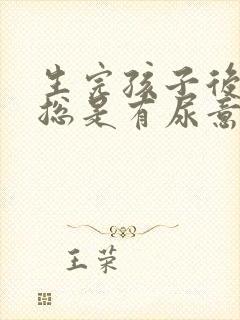 生完孩子後
总是有尿意
王荣